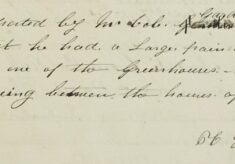 ported by Mr Cole.
t he had a Large pain
one of the Greenhouses. -
ing between the houses of
PC